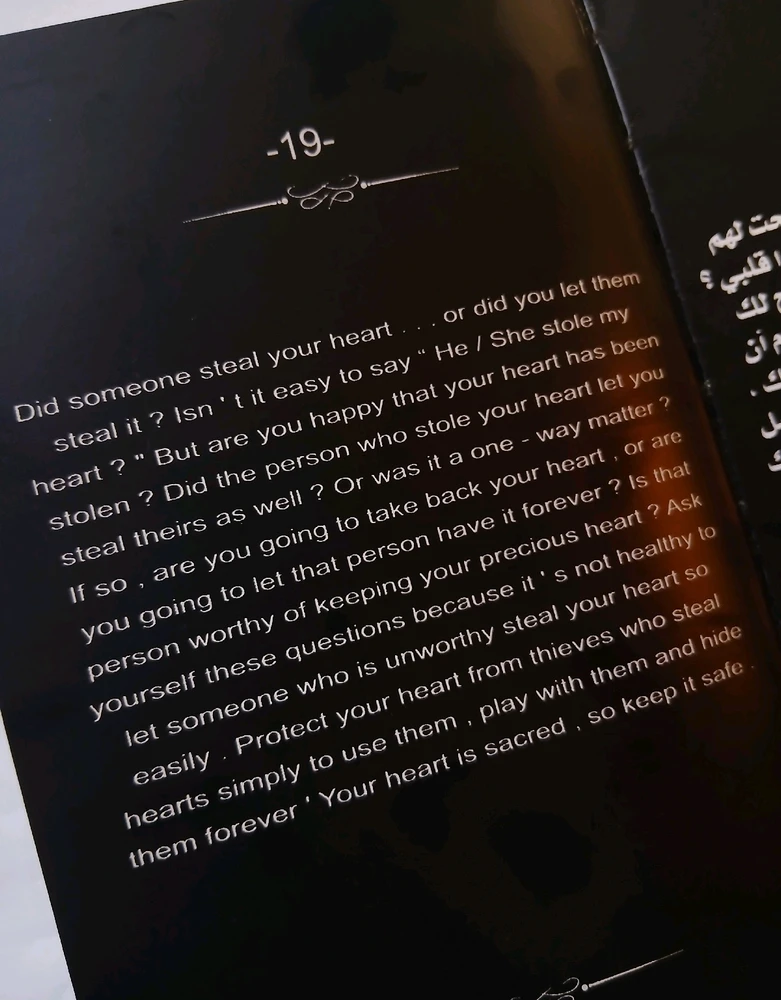 -19-
Did someone steal your heart . . . or did you let them
steal it ? Isn ' t it easy to say “ He / She stole my
heart ? " But are you happy that your heart has been
stolen ? Did the person who stole your heart let you
steal theirs as well ? Or was it a one - way matter ?
If so , are you going to take back your heart , or are
you going to let that person have it forever ? Is that
person worthy of keeping your precious heart ? Ask
yourself these questions because it ' s not healthy to
let someone who is unworthy steal your heart so
easily . Protect your heart from thieves who steal
hearts simply to use them , play with them and hide
them forever ' Your heart is sacred , so keep it safe .
لهم
قلبي ؟
لك
أن